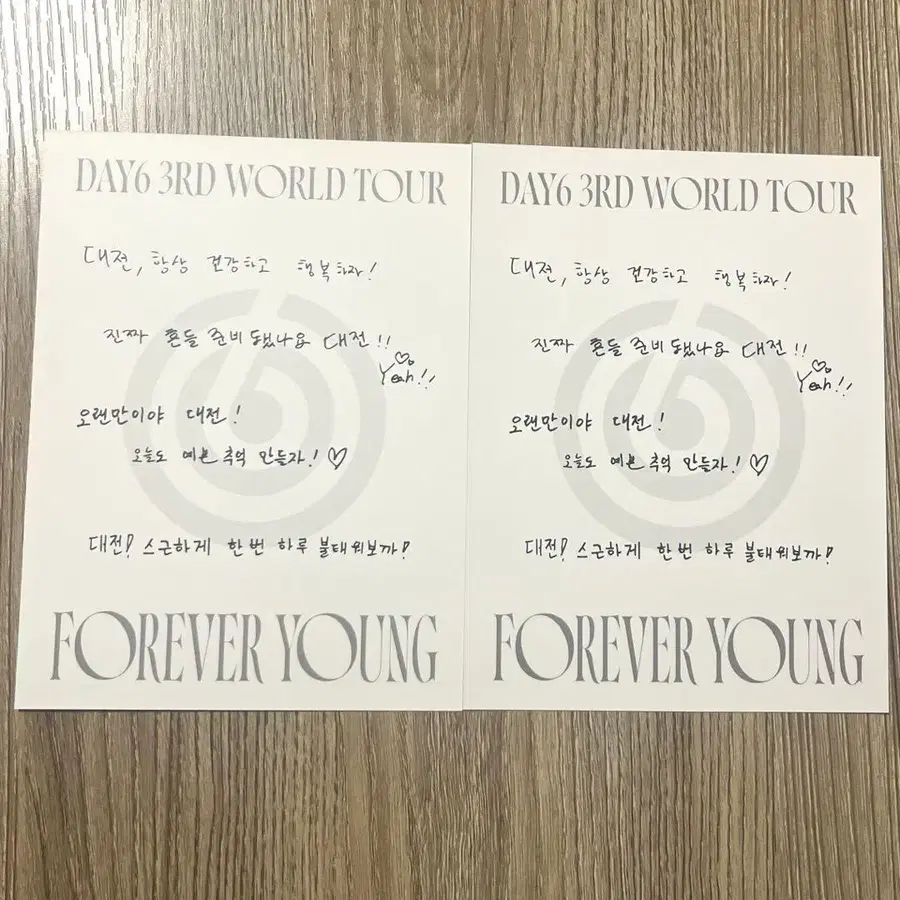 DAY6 3RD WORLD TOUR
대전, 항상 건강하고 행복하자!
진짜 흔들 준비 됐나요 대전!!
Yeah!!
오랜만이야 대전!
오늘도 예쁜 추억 만들자! ♡
대전! 스근하게 한번 하루 불태워보까!
FOREVER YOUNG
DAY6 3RD WORLD TOUR
대전, 항상 건강하고 행복하자!
진짜 흔들 준비 됐나요 대전!!
Yeah!!
오랜만이야 대전!
오늘도 예쁜 추억 만들자! ♡
대전! 스근하게 한번 하루 불태워보까!
FOREVER YOUNG